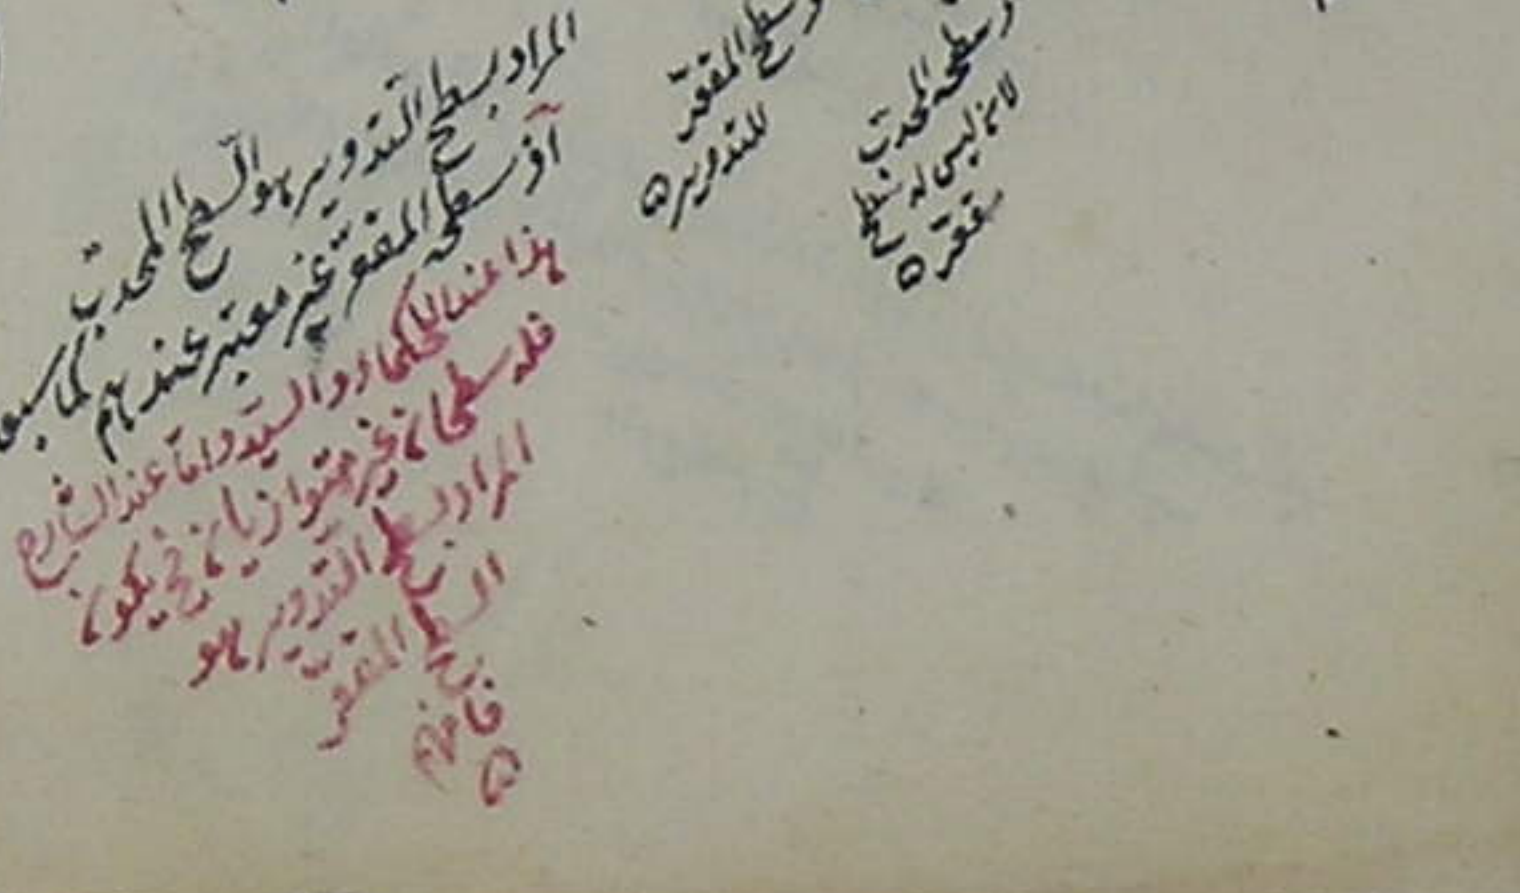 وسطحه المحدب
لانه ليس له سطح
مقعر ه
وسطح المقعر
للتدوير ه
المراد بسطح التدوير هو السطح المحدب
اذ سطحه المقعر غير معتبر عندهم كما سبق
هذا عند الحكماء والسيد واما عند الشارح
فله سطحان غير متوازيان فح يكون
المراد بسطح التدوير هو
السطح المقعر
فافهم
ه